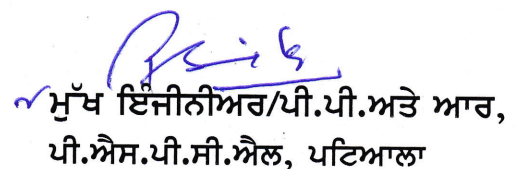 ਮੁੱਖ ਇੰਜੀਨੀਅਰ/ਪੀ.ਪੀ.ਅਤੇ ਆਰ,
ਪੀ.ਐਸ.ਪੀ.ਸੀ.ਐਲ, ਪਟਿਆਲਾ